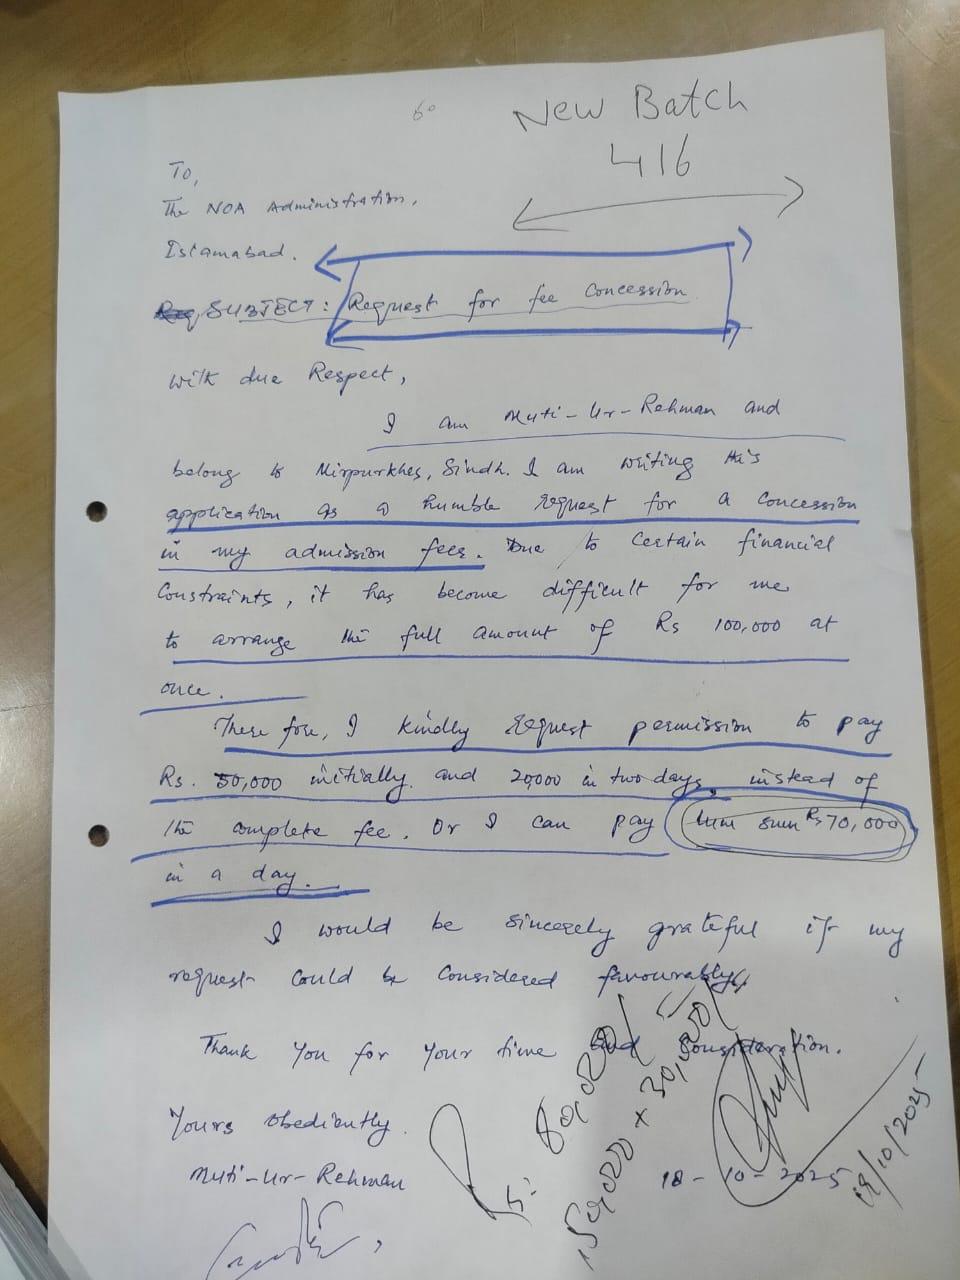 New Batch
416
To,
The NOA Administration,
Islamabad.
SUBJECT: Request for fee Concession
With due Respect,
I am Muti-Ur-Rehman and
belong to Mirpurkhas, Sindh. I am writing this
application as a humble request for a concession
in my admission fees. Due to certain financial
Constraints, it has become difficult for me
to arrange the full amount of Rs 100,000 at
once.
Therefore, I kindly request permission to pay
Rs. 50,000 initially and 20,000 in two days, instead of
the complete fee. Or I can pay lum sum Rs 70,000
in a day.
I would be sincerely grateful if my
request could be considered favourably.
Thank you for your time and Consideration.
Yours obediently.
Muti-Ur-Rehman
Rs: 80,000/=
50,000 + 30,000/
18-10-2025
18/10/2025